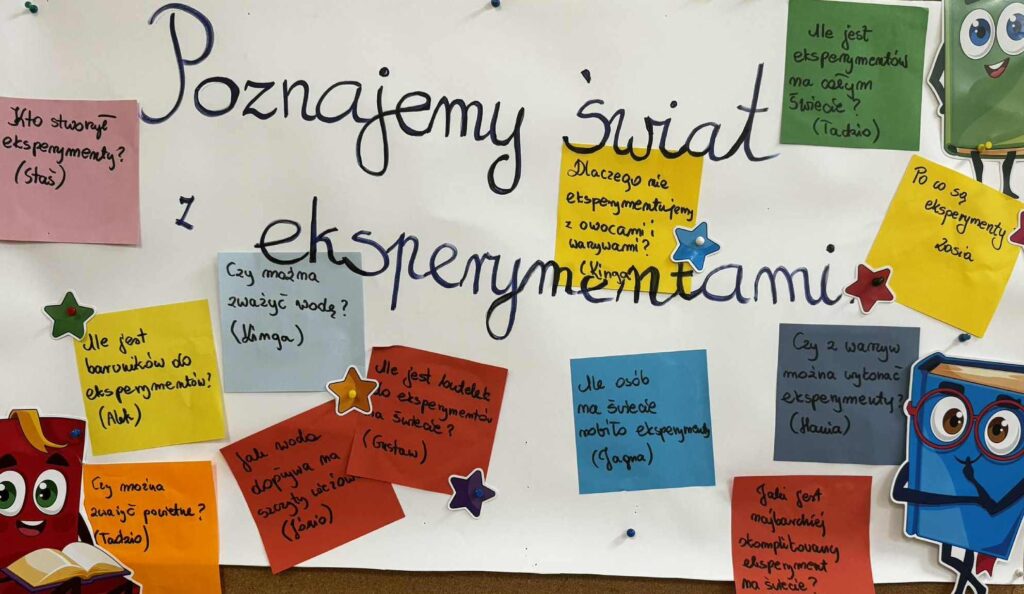 Poznajemy świat
z eksperymentami.
Kto stworzył
eksperymenty?
(Staś)
Ile jest
eksperymentów
na całym
świecie?
(Tadzio)
Dlaczego nie
eksperymentujemy
z owocami i
warzywami?
(Kinga)
Po co są
eksperymenty
Zosia
Czy można
zważyć wodę?
(Kinga)
Ile jest
barwników do
eksperymentów?
(Alek)
Ile jest butelek
do eksperymentów
na świecie?
(Gustaw)
Ile osób
na świecie
robiło eksperymenty
(Jagna)
Czy z warzyw
można wykonać
eksperymenty?
(Hania)
Jak woda
dopływa na
szczyty wieżowców
Czy można
zważyć powietrze?
(Tadzio)
Jaki jest
najbardziej
skomplikowany
eksperyment
na świecie?